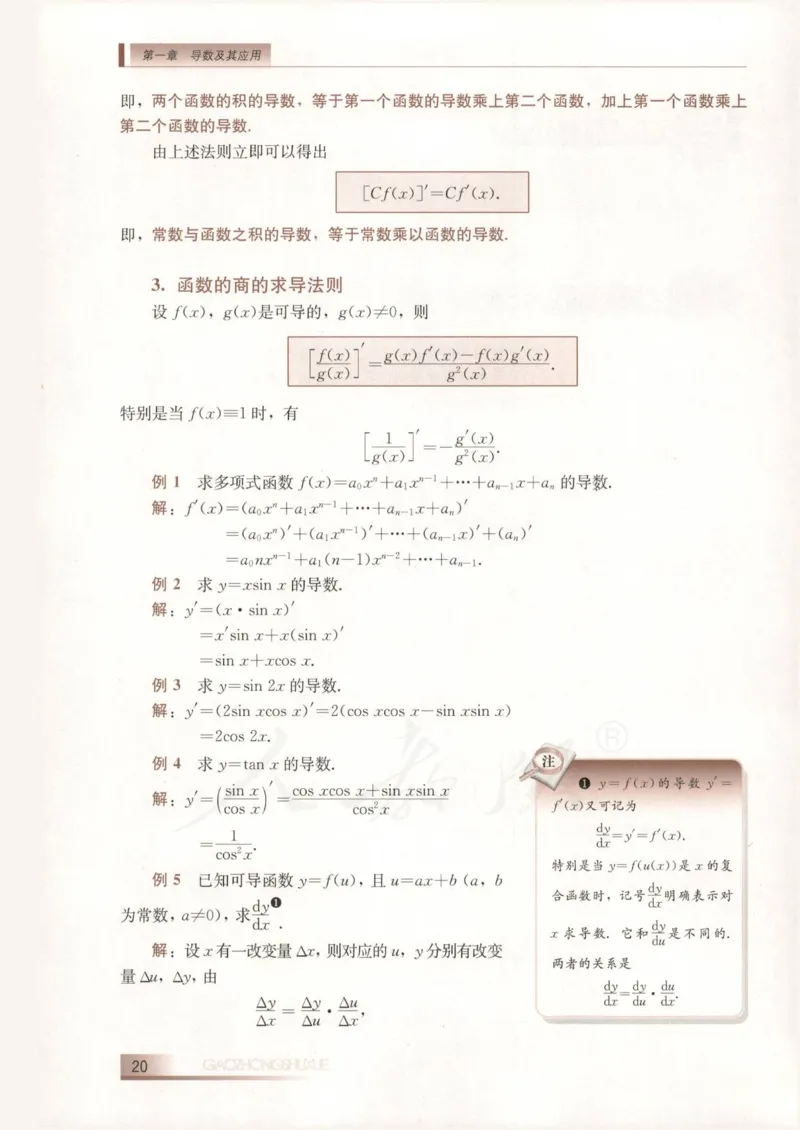 第一章 导数及其应用
即，两个函数的积的导数，等于第一个函数的导数乘上第二个函数，加上第一个函数乘上
第二个函数的导数.
由上述法则立即可以得出
[Cf(x)]′=Cf′(x).
即，常数与函数之积的导数，等于常数乘以函数的导数.
3. 函数的商的求导法则
设 f(x)，g(x)是可导的，g(x)≠0，则
[f(x)/g(x)]′=(g(x)f′(x)−f(x)g′(x))/g²(x).
特别是当 f(x)≡1 时，有
[1/g(x)]′=−g′(x)/g²(x).
例 1 求多项式函数 f(x)=a₀xⁿ+a₁xⁿ⁻¹+…+aₙ₋₁x+aₙ 的导数.
解：f′(x)=(a₀xⁿ+a₁xⁿ⁻¹+…+aₙ₋₁x+aₙ)′
=(a₀xⁿ)′+(a₁xⁿ⁻¹)′+…+(aₙ₋₁x)′+(aₙ)′
=a₀nxⁿ⁻¹+a₁(n−1)xⁿ⁻²+…+aₙ₋₁.
例 2 求 y=xsin x 的导数.
解：y′=(x·sin x)′
=x′sin x+x(sin x)′
=sin x+xcos x.
例 3 求 y=sin 2x 的导数.
解：y′=(2sin xcos x)′=2(cos xcos x−sin xsin x)
=2cos 2x.
例 4 求 y=tan x 的导数.
解：y′=(sin x/cos x)′=(cos xcos x+sin xsin x)/cos²x
=1/cos²x.
例 5 已知可导函数 y=f(u)，且 u=ax+b (a，b
为常数，a≠0)，求dy/dx❶.
解：设 x 有一改变量 Δx，则对应的 u，y 分别有改变
量 Δu，Δy，由
Δy/Δx=Δy/Δu·Δu/Δx，
注
❶ y=f(x)的导数 y′=
f′(x)又可记为
dy/dx=y′=f′(x).
特别是当 y=f(u(x))是 x 的复
合函数时，记号dy/dx明确表示对
x 求导数. 它和dy/du是不同的.
两者的关系是
dy/dx=dy/du·du/dx.
20 GAOZHONGSHUXUE